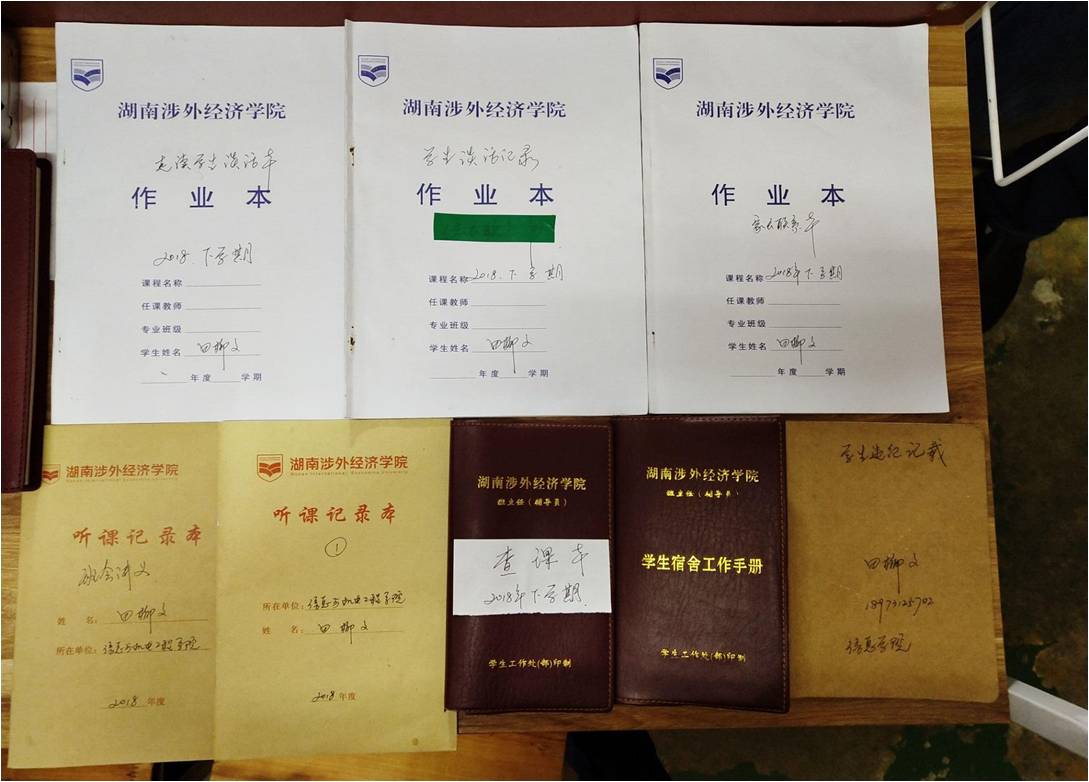 湖南涉外经济学院
走读学生谈话本
作 业 本
2018.下学期
课程名称
任课教师
专业班级
学生姓名 田柳文
年度 学期
湖南涉外经济学院
学生谈话记录
作 业 本
课程名称 2018.下学期
任课教师
专业班级
学生姓名 田柳文
年度 学期
湖南涉外经济学院
作 业 本
家长联系本
课程名称 2018年下学期
任课教师
专业班级
学生姓名 田柳文
年度 学期
湖南涉外经济学院
听课记录本
班会讲义
姓 名: 田柳文
所在单位: 信息与机电工程学院
2018 年度
湖南涉外经济学院
Hunan International Economics University
听课记录本
①
所在单位: 信息与机电工程学院
姓 名: 田柳文
2018 年度
湖南涉外经济学院
班主任(辅导员)
查课本
2018年下学期
学生工作处(部)印制
湖南涉外经济学院
班主任(辅导员)
学生宿舍工作手册
学生工作处(部)印制
学生违纪记载
田柳文
18973125702
信息学院